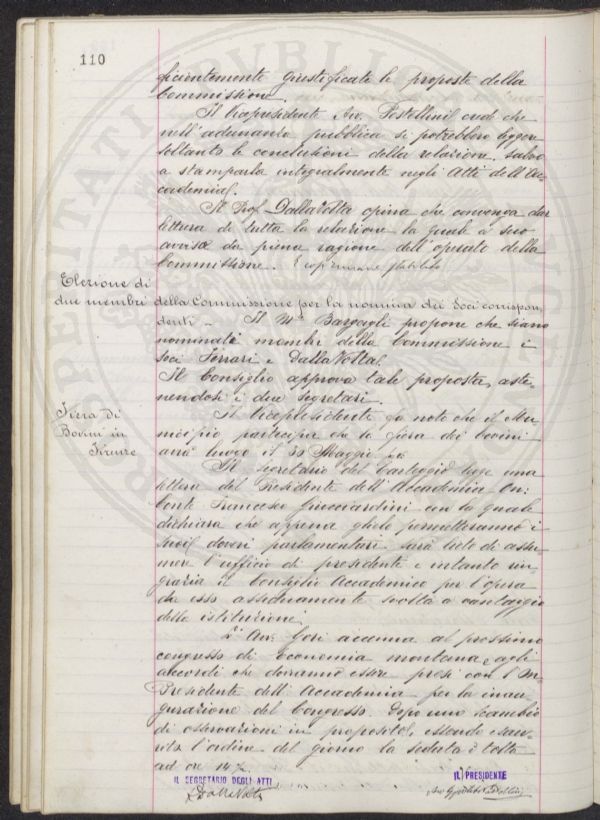 110
ficientemente giustificate le proposte della
Commissione.
Il Vicepresidente Avv. Pestellini crede che
nell'adunanza pubblica si potrebbero leggere
soltanto le conclusioni della relazione, salvo
a stamparla integralmente negli Atti dell'Ac-
cademia.
Il Prof. Dalla Volta opina che convenga dar
lettura di tutta la relazione la quale a suo
avviso dà piena ragione dell'operato della
Commissione. E così rimane stabilito
Elezione di
due membri della Commissione per la nomina dei Soci corrispon
denti - Il Mse Bargagli propone che siano
nominati membri della Commissione i
soci Ferrari e Dalla Volta.
Il Consiglio approva tale proposta, aste-
nendosi i due segretari.
Fiera di
Bovini in
Firenze
Il Vicepresidente fa noto che il Mu-
nicipio partecipa che la fiera dei bovini
avrà luogo il 30 Maggio
Il segretario del Carteggio legge una
lettera del Presidente dell'Accademia On.
Conte Francesco Guicciardini con la quale
dichiara che appena glielo permetteranno i
suoi doveri parlamentari sarà lieto di assu-
mere l'ufficio di presidente e intanto rin-
grazia il Consiglio Accademico per l'opera
da esso assiduamente svolta a vantaggio
della istituzione.
L'Avv. Gori accenna al prossimo
congresso di Economia montana e agli
accordi che dovranno essere presi con l'On.
Presidente dell'Accademia per la inau-
gurazione del Congresso. Dopo uno scambio
di osservazioni in proposito, essendo esau-
rito l'ordine del giorno la seduta è tolta
ad ore 14 ½
IL SEGRETARIO DEGLI ATTI
IL PRESIDENTE
Dalla Volta
Avv Ippolito Pestellini